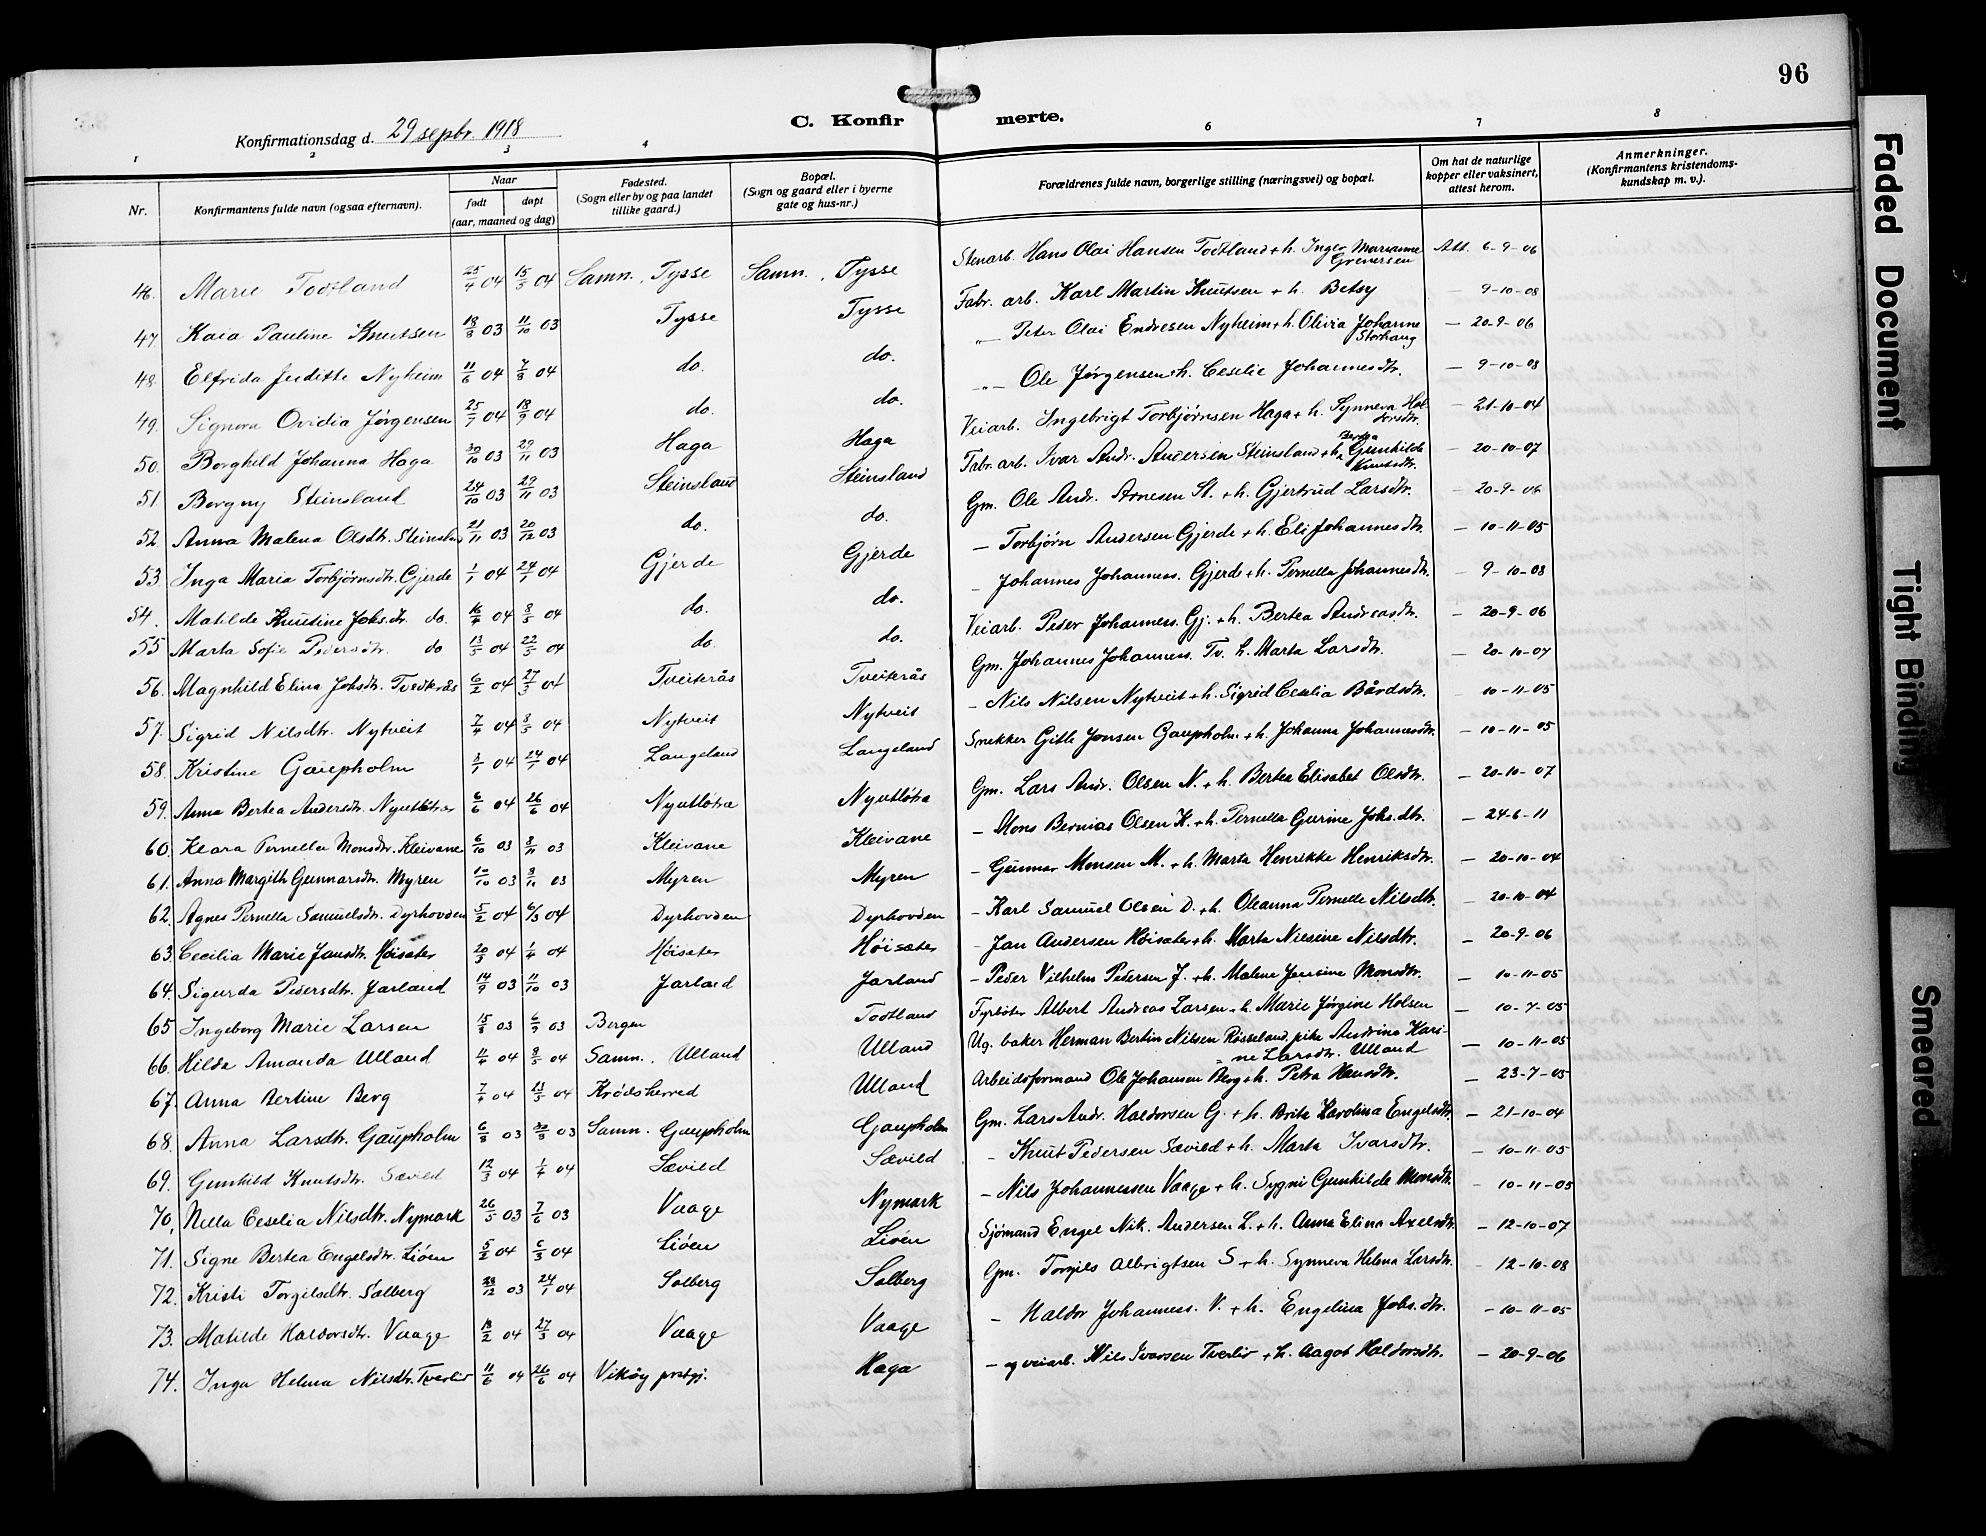 96
Konfirmationsdag d. 29 septbr. 1918
C. Konfirmerte.
1 2 3 4 6 7 8
Nr.
Konfirmantens fulde navn (ogsaa efternavn).
Naar
født
døpt
(aar, maaned og dag)
Fødested.
(Sogn eller by og paa landet
tillike gaard.)
Bopæl.
(Sogn og gaard eller i byerne
gate og hus-nr.)
Forældrenes fulde navn, borgerlige stilling (næringsvei) og bopæl.
Om hat de naturlige
kopper eller vaksinert,
attest herom.
Anmerkninger.
(Konfirmantens kristendoms-
kundskap m. v.).
46. Marie Todtland 25/4 04 15/5 04 Samn. Tysse Samn. Tysse Stenarb. Hans Olai Hansen Todtland + h. Inger Marianne Greversen Att. 6-9-06
47. Kaia Pauline Knutsen 18/8 03 11/10 03 Tysse Tysse Fabr. arb. Karl Martin Knutsen + h. Betsy 9-10-08
48. Elfrida Juditte Nyheim 11/6 04 7/8 04 do. do. -"- Peter Olai Endresen Nyheim + h. Olivia Johanne Storhaug - 20-9-06
49. Signora Ovidia Jørgensen 25/7 04 18/9 04 do. do. -"- Ole Jørgensen + h. Ceselie Johannesdtr. - 9-10-08
50. Borghild Johanna Haga 30/10 03 29/11 03 Haga Haga Veiarb. Ingebrigt Torbjørnsen Haga + h. Synneva Haldorsdtr. - 21-10-04
51. Borgny Steinsland 24/10 03 29/11 03 Steinsland Steinsland Fabr. arb. Ivar Andr. Andersen Steinsland + h. Bertea Gunhilde Knutsdtr. - 20-10-07
52. Anna Malena Olsdtr. Steinsland 21/11 03 20/12 03 do. do. Gm. Ole Andr. Arnesen St. + h. Gjertrud Larsdtr. - 20-9-06
53 Inga Maria Torbjørnsdtr. Gjerde 1/1 04 24/1 04 Gjerde Gjerde - Torbjørn Andersen Gjerde + h. Eli Johannesdtr. - 10-11-05
54. Matilde Knutine Johs.dtr. do. 16/4 04 8/5 04 do. do. - Johannes Johanness. Gjerde + h. Pernella Johannesdtr. - 9-10-08
55 Marta Sofie Pedersdtr. do 13/5 04 22/5 04 do. do. Veiarb. Peder Johanness. Gj. + h. Bertea Andreasdtr. - 20-9-06
56. Magnhild Elina Johsdtr. Tveiterås 6/2 04 27/3 04 Tveiterås Tveiterås Gm. Johannes Johanness. Tv. h. Marta Larsdtr. - 20-10-07
57. Sigrid Nilsdtr. Nytveit 7/4 04 8/5 04 Nytveit Nytveit - Nils Nilsen Nytveit + h. Sigrid Ceselia Bårdsdtr. - 10-11-05
58. Kristine Gaupholm 3/1 04 24/1 04 Langeland Langeland Snekker Gitle Jonsen Gaupholm. + h. Johanna Johannesdtr. - 10-11-05
59. Anna Bertea Andersdtr. Nyutlötra 6/6 04 26/6 04 Nyutlötra Nyutlötra Gm. Lars Andr. Olsen N. + h. Bertea Elisabet Olsdtr. - 20-10-07
60. Klara Pernella Monsdtr. Kleivane 6/10 03 8/11 03 Kleivane Kleivane - Mons Bernias Olsen K. + h. Pernella Gurine Johs.dtr. - 24-6-11
61. Anna Margith Gunnarsdtr. Myren 10/10 03 8/11 03 Myren Myren - Gunnar Monsen M. + h. Marta Henrikke Henriksdtr. - 20-10-04
62. Agnes Pernella Samuelsdtr. Dyrhovden 5/2 04 6/3 04 Dyrhovden Dyrhovden - Karl Samuel Olsen D. + h. Oleanna Pernelle Nilsdtr. - 20-10-04
63. Cecilia Marie Jansdtr. Høisæter 20/3 04 1/4 04 Høisæter Høisæter - Jan Andersen Høisæter + h. Marta Nilsine Nilsdtr. - 20-9-06
64. Sigurda Pedersdtr. Jarland 14/9 03 11/10 03 Jarland Jarland - Peder Vilhelm Pedersen J. + h. Malene Jansine Monsdtr. - 10-11-05
65 Ingeborg Marie Larsen 15/8 03 6/9 03 Bergen Todtland Fyrbøter Albert Andreas Larsen + h. Marie Jørgine Holsen - 10-7-05
66. Hilda Amanda Ulland 11/4 04 8/5 04 Samn. Ulland Ulland Ug. baker Herman Bertin Nilsen Røsseland, pike Andrina Karine Larsdtr. Ulland - 10-11-05
67. Anna Bertine Berg 7/4 04 23/5 04 Krødsherred Ulland Arbeidsformand Ole Johansen Berg + h. Petra Hansdtr. - 23-7-05
68. Anna Larsdtr. Gaupholm 6/8 03 30/8 03 Samn. Gaupholm Gaupholm Gm. Lars Andr. Haldorsen G. + h. Brita Karolina Engelsdtr. - 21-10-04
69. Gunhild Knutsdtr. Sævild 12/3 04 1/4 04 Sævild Sævild - Knut Pedersen Sævild + h. Marta Ivarsdtr. - 10-11-05
70. Nella Ceselia Nilsdtr. Nymark 26/5 03 7/6 03 Vaage Nymark - Nils Johannessen Vaage + h. Sygni Gunhilde Monsdtr. - 10-11-05
71. Signe Bertea Engelsdtr. Liøen 5/2 04 6/3 04 Liøen Liøen Sjømand Engel Nik. Andersen L. + h. Anna Elina Axelsdtr. - 12-10-07
72. Kristi Torgilsdtr. Solberg 28/12 03 24/1 04 Solberg Solberg Gm. Torgils Albrigtsen S + h. Synneva Helena Larsdtr. - 12-10-08
73. Matilde Haldorsdtr. Vaage 18/2 04 27/3 04 Vaage Vaage - Haldor Johanness. V. + h. Engelina Johs.dtr. - 10-11-05
74. Inga Helena Nilsdtr. Tverliv 11/6 04 26/6 04 Vikøy prstgj. Haga - og veiarb. Nils Ivarsen Tverliv + h. Aagot Haldorsdtr. - 20-9-06
Faded Document
Tight Binding
Smeared